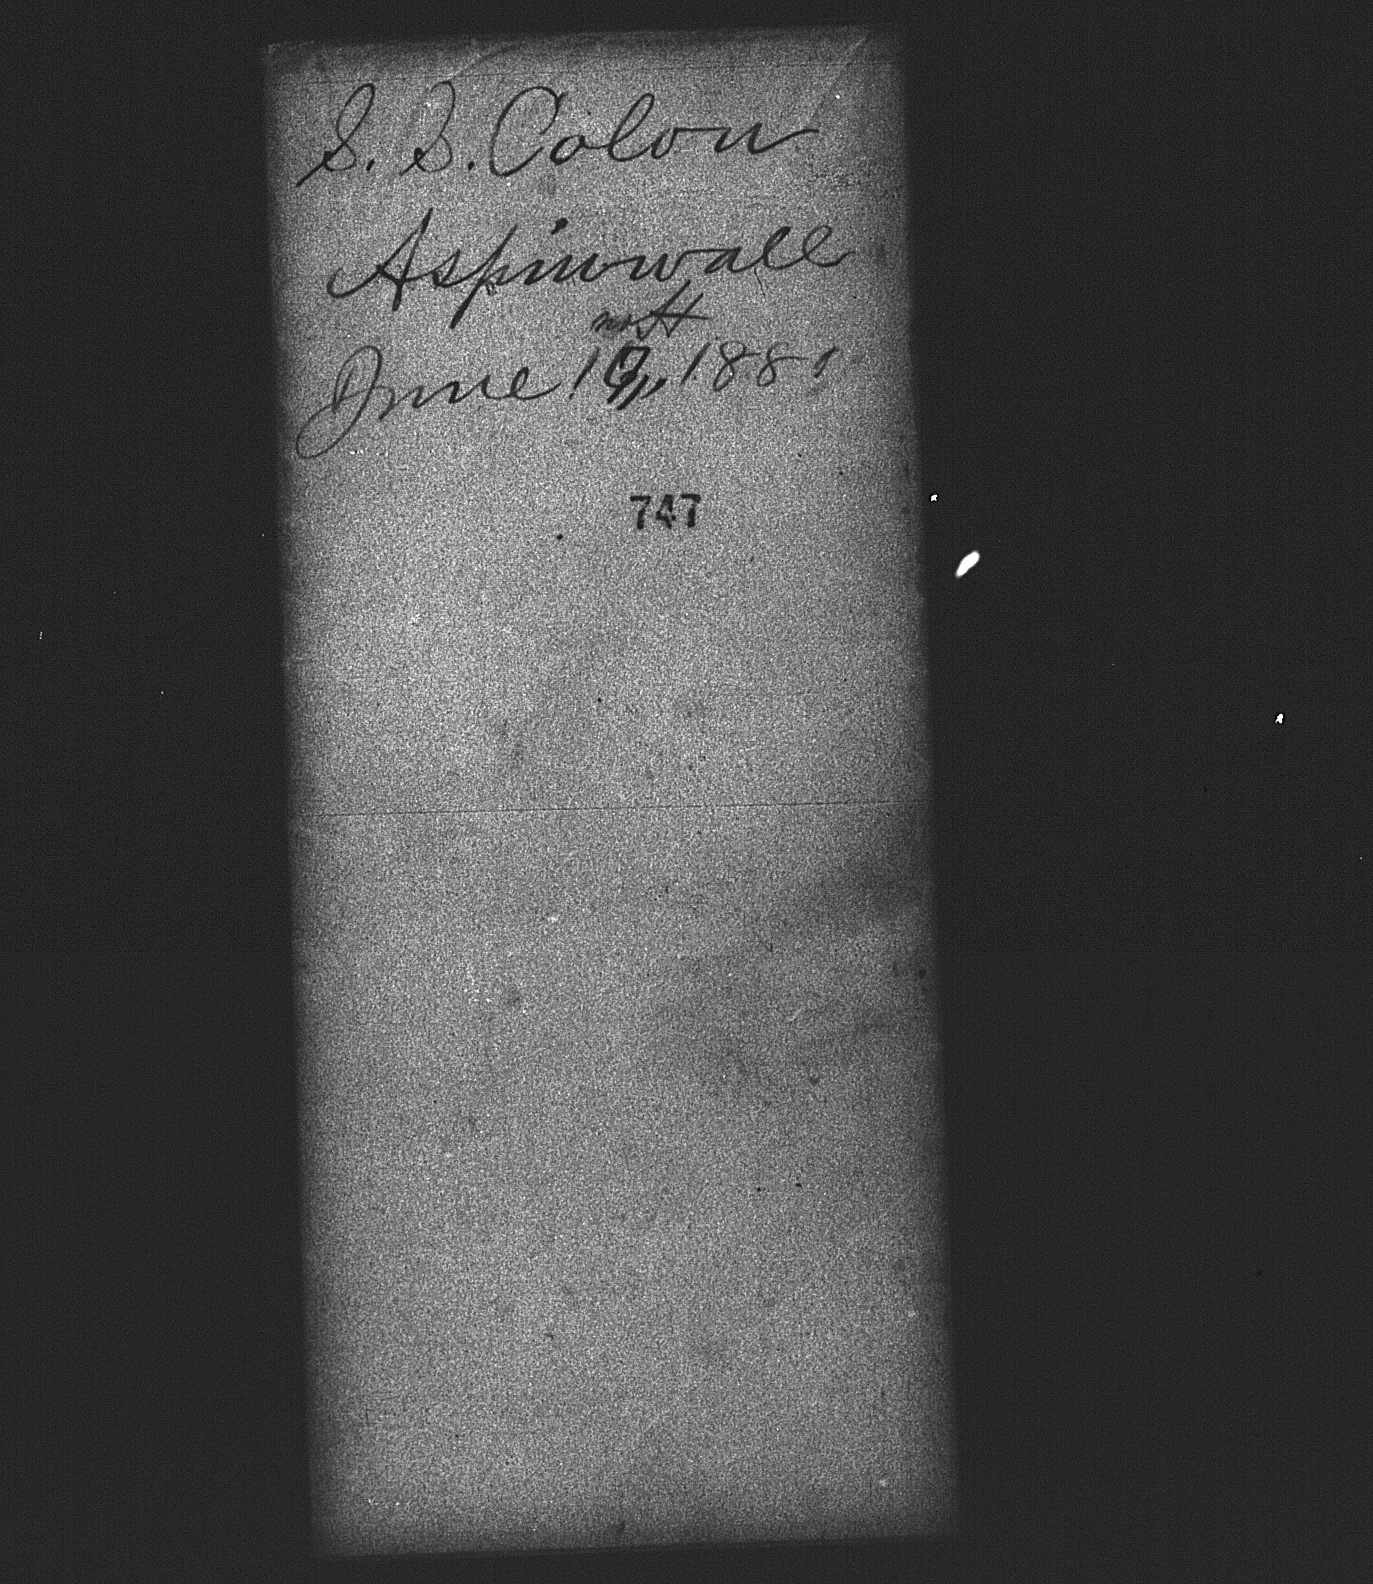 S. S. Colon
Aspinwall
June 19, 1880
747